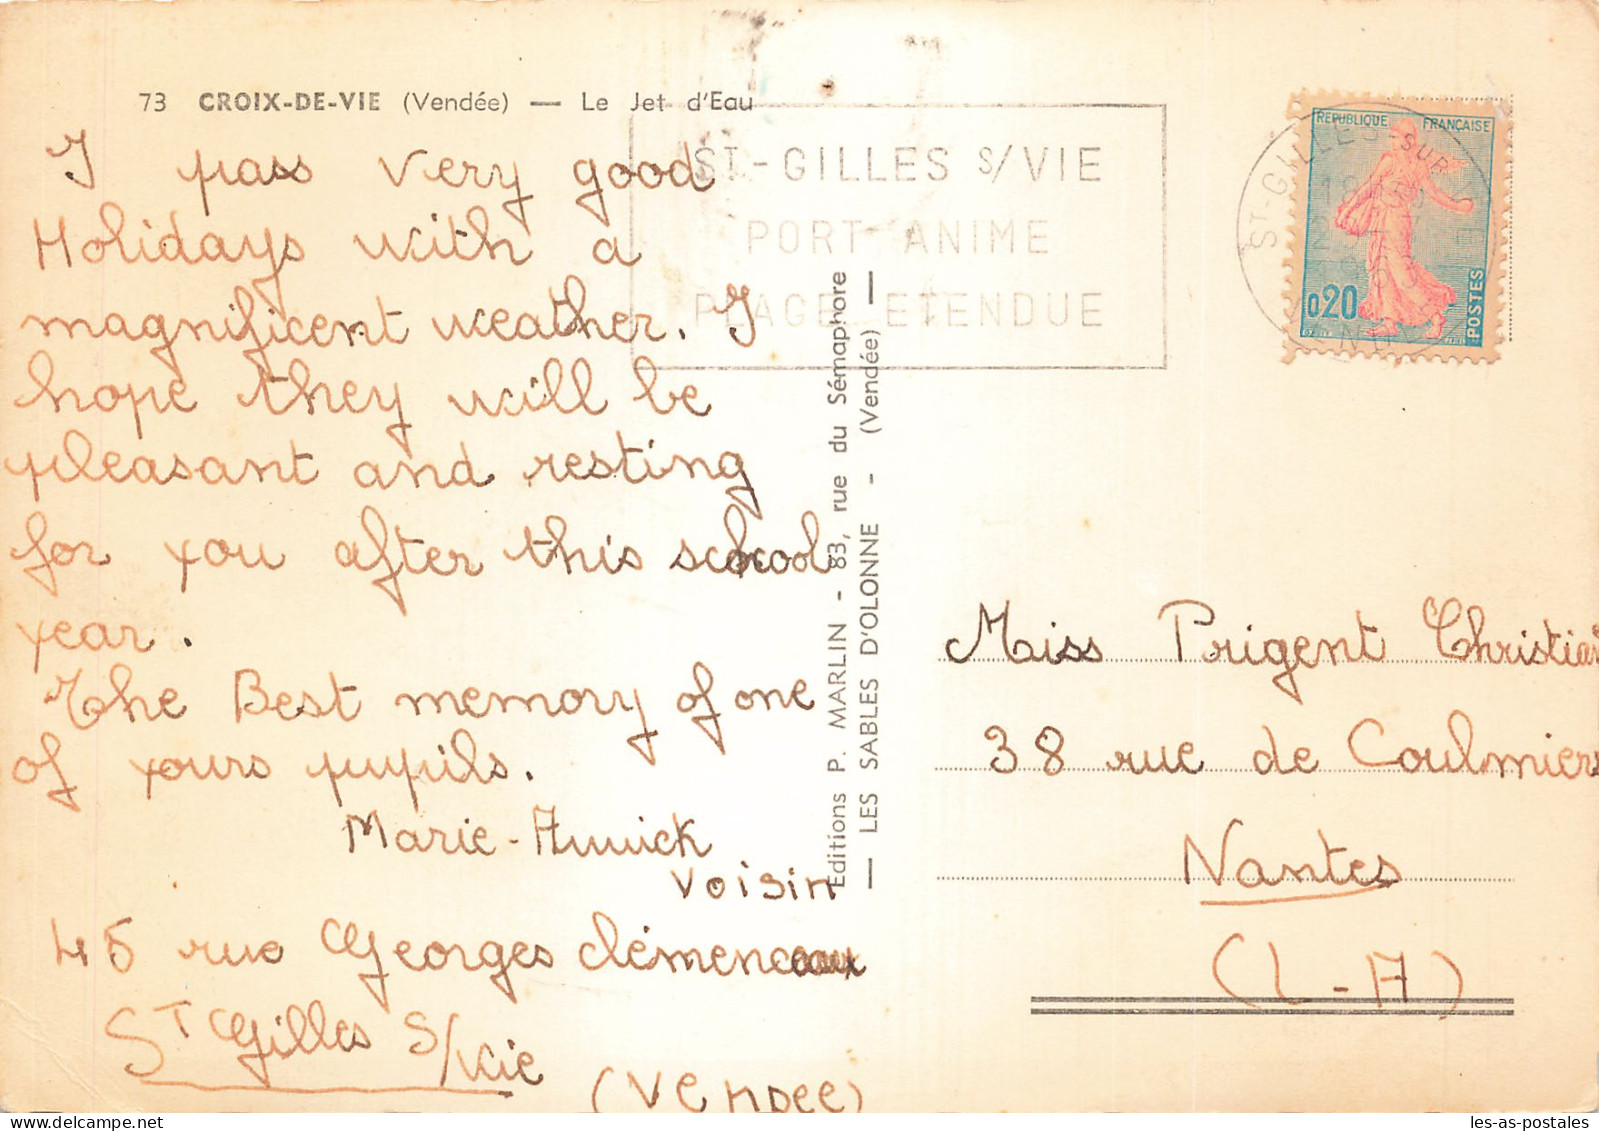 73 CROIX-DE-VIE (Vendée) — Le Jet d'Eau
I pass very good
Holidays with a
magnificent weather. I
hope they will be
pleasant and resting
for you after this school
year.
The Best memory of one
of yours pupils.
Marie-Annick
Voisin
45 rue Georges Clémenceau
St Gilles S/Vie
(VENDEE)
Editions P. MARLIN - 83, rue du Sémaphore
— LES SABLES D'OLONNE - (Vendée) —
ST-GILLES S/VIE
PORT ANIME
PLAGE ETENDUE
ST-GILLES-SUR-VIE
REPUBLIQUE FRANÇAISE
0,20
POSTES
Miss Prigent Christian
38 rue de Coulmiers
Nantes
(L-A)
les-as-postales